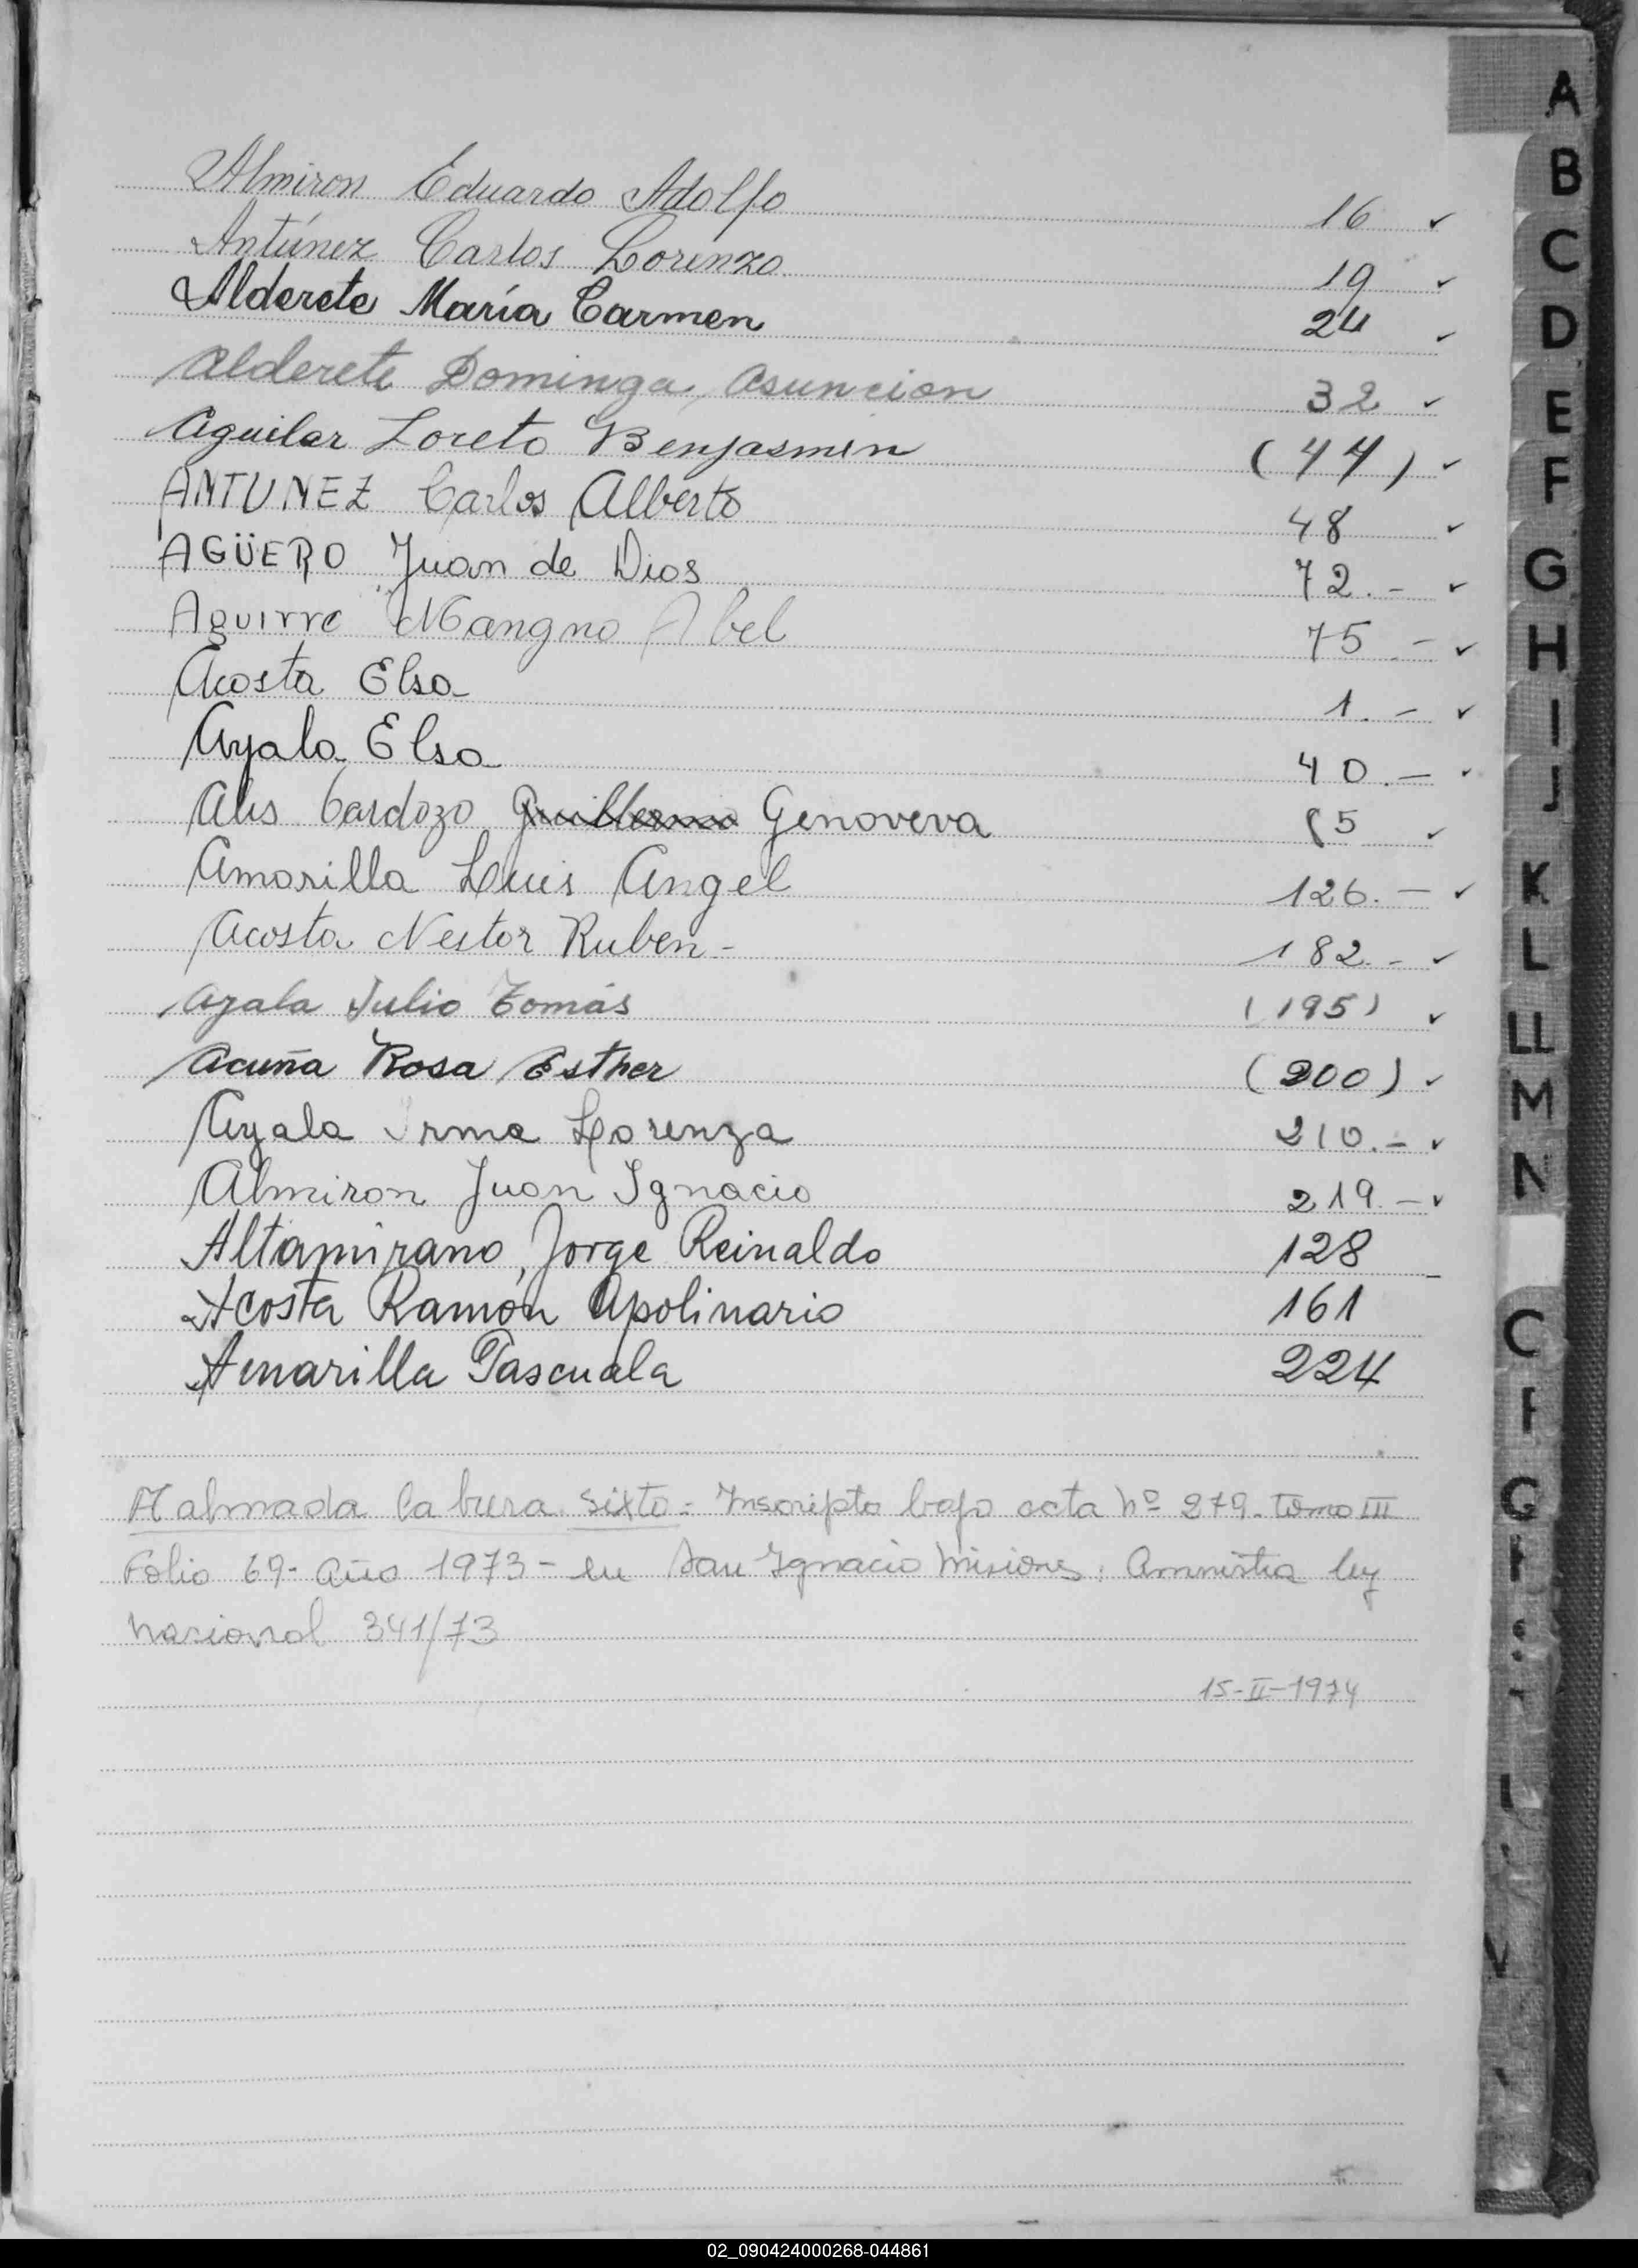 Almiron Eduardo Adolfo 16 ✓
Antúnez Carlos Lorenzo 19 ✓
Alderete María Carmen 24 ✓
Alderete Dominga Asuncion 32 ✓
Aguilar Loreto Benjasmin (44) ✓
ANTUNEZ Carlos Alberto 48 ✓
AGÜERO Juan de Dios 72.- ✓
Aguirre Mangno Abel 75 - ✓
Acosta Elsa 1.- ✓
Ayala Elsa 40.-
Alis Cardozo Guillermo Genoveva 85 ✓
Amarilla Luis Angel 126.- ✓
Acosta Nestor Ruben- 182.- ✓
Ayala Julio Tomás (195) ✓
Acuña Rosa Esther (200) ✓
Ayala Irma Lorenza 210.- ✓
Almiron Juan Ignacio 219.- ✓
Altamirano, Jorge Reinaldo 128
Acosta Ramón Apolinario 161
Amarilla Pascuala 224
Almada Cabrera Sixto: Inscripto bajo acta Nº 279. tomo III
Folio 69- Año 1973- en San Ignacio Misiones: Amnistia ley
nacional 341/73
15-II-1974
A
B
C
D
E
F
G
H
I
J
K
L
LL
M
N
02_090424000268-044861